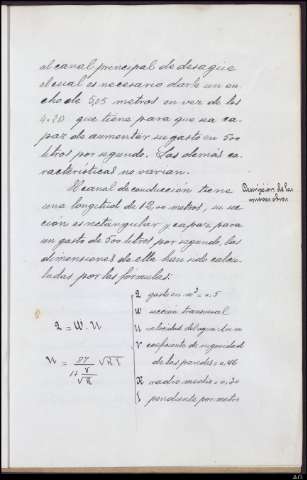 al canal principal de desagüe
al cual es necesario darle un an-
cho de 5,05 metros en vez de los
4.20 que tiene para que sea ca-
paz de aumentar su gasto en 500
litros por segundo. Las demás ca-
racterísticas no varian.
El canal de conducción tiene
una longitud de 1200 metros, su sec-
ción es rectangular y capaz para
un gasto de 500 litros por segundo, las
dimensiones de ella han sido calcu-
ladas por las formulas:
de las
nuevas obras
Q = W. U
U = 87 / 1+ γ/√R √R I
Q gasto en m³ = 0.5
W sección transversal
U velocidad del agua
γ coeficiente de rugosidad
de las paredes = 0,46
R radio medio = 0,30
I pendiente por metro